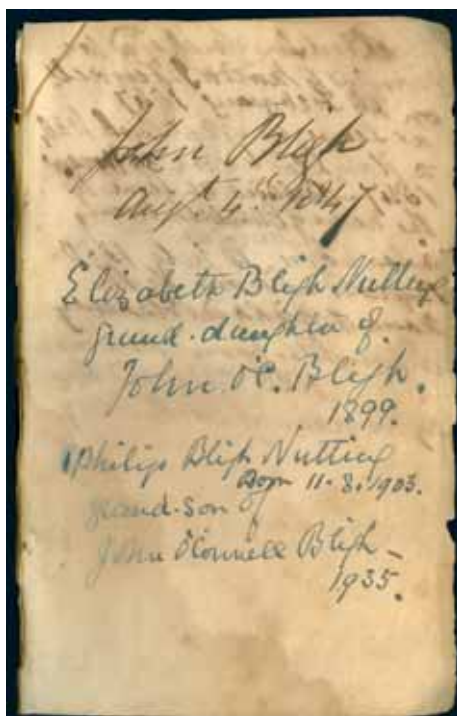 John Bligh
Augt 4th 1847
Elizabeth Bligh Nutting
grand-daughter of
John O'C. Bligh.
1899.
Philip Bligh Nutting
Born 11-8-1903.
grand-son of
John O'Connell Bligh -
1935.